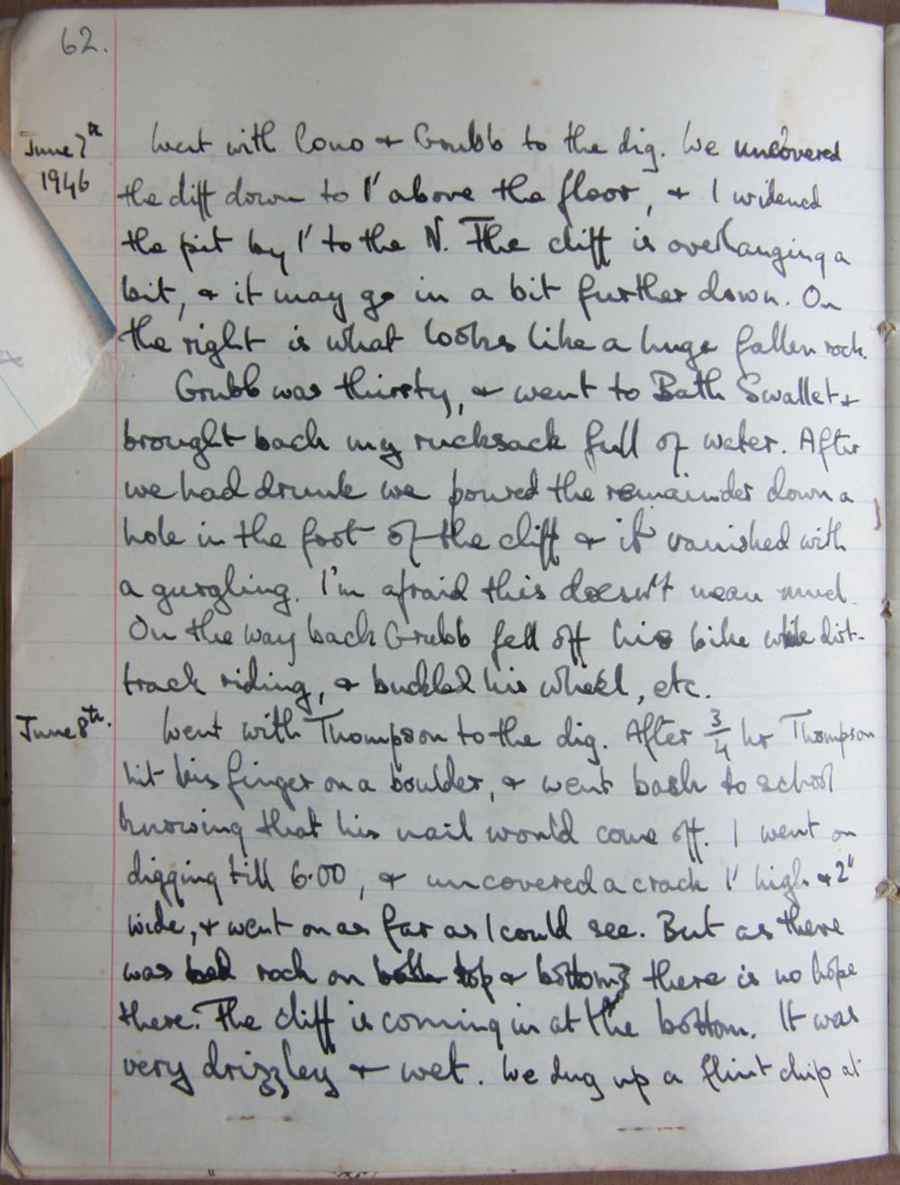 62.
June 7th Went with Cono + Grubb to the dig. We uncovered
1946 the cliff down to 1' above the floor, + I widened
the pit by 1' to the N. The cliff is overhanging a
bit, + it may go in a bit further down. On
the right is what looks like a huge fallen rock.
Grubb was thirsty, + went to Bath Swallet +
brought back my rucksack full of water. After
we had drunk we poured the remainder down a
hole in the foot of the cliff + it vanished with
a gurgling. I'm afraid this doesn't mean much.
On the way back Grubb fell off his bike while dirt-
track riding, + buckled his wheel, etc.
June 8th. Went with Thompson to the dig. After 3/4 hr Thompson
hit his finger on a boulder, + went back to school
knowing that his nail would come off. I went on
digging till 6.00, + uncovered a crack 1' high + 2"
wide, + went on as far as I could see. But as there
was bed rock on both top + bottom, there is no hope
there. The cliff is coming in at the bottom. It was
very drizzley + wet. We dug up a flint chip at